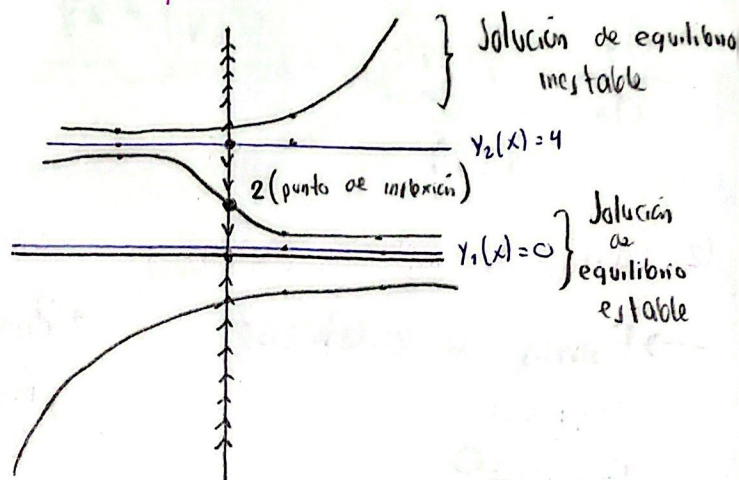 Solución de equilibrio
inestable
y₂(x)=4
2 (punto de inflexión)
y₁(x)=0
Solución
de
equilibrio
estable